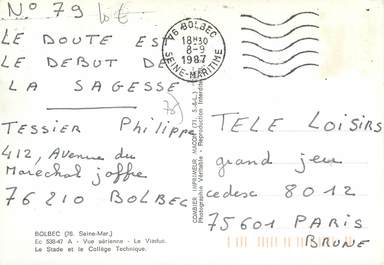 No 79 lot
LE DOUTE EST
LE DEBUT DE
LA SAGESSE
TESSIER Philippe
412, Avenue du
Marechal joffre
76210 BOLBEC
BOLBEC (76. Seine-Mar.)
Ec 538-47 A - Vue aérienne - Le Viaduc.
Le Stade et le Collège Technique.
76 BOLBEC
18H30
8-9
1987
SEINE-MARITIME
COMBIER IMPRIMEUR MACON (71. S.-&-L.)
Photographie Véritable - Reproduction Interdite
TELE LOISIRS
grand jeu
cedex 8012
75601 PARIS
BRUNE